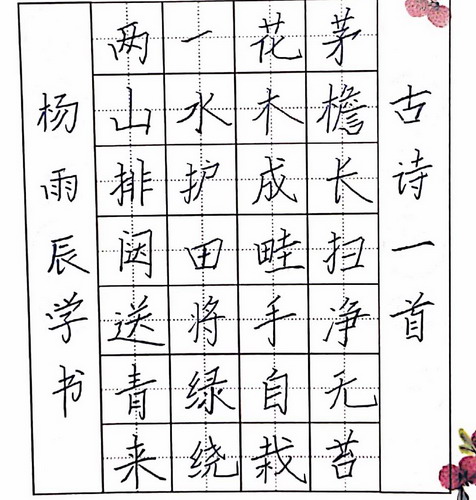 古诗一首
茅檐长扫净无苔
花木成畦手自栽
一水护田将绿绕
两山排闼送青来
杨雨辰学书